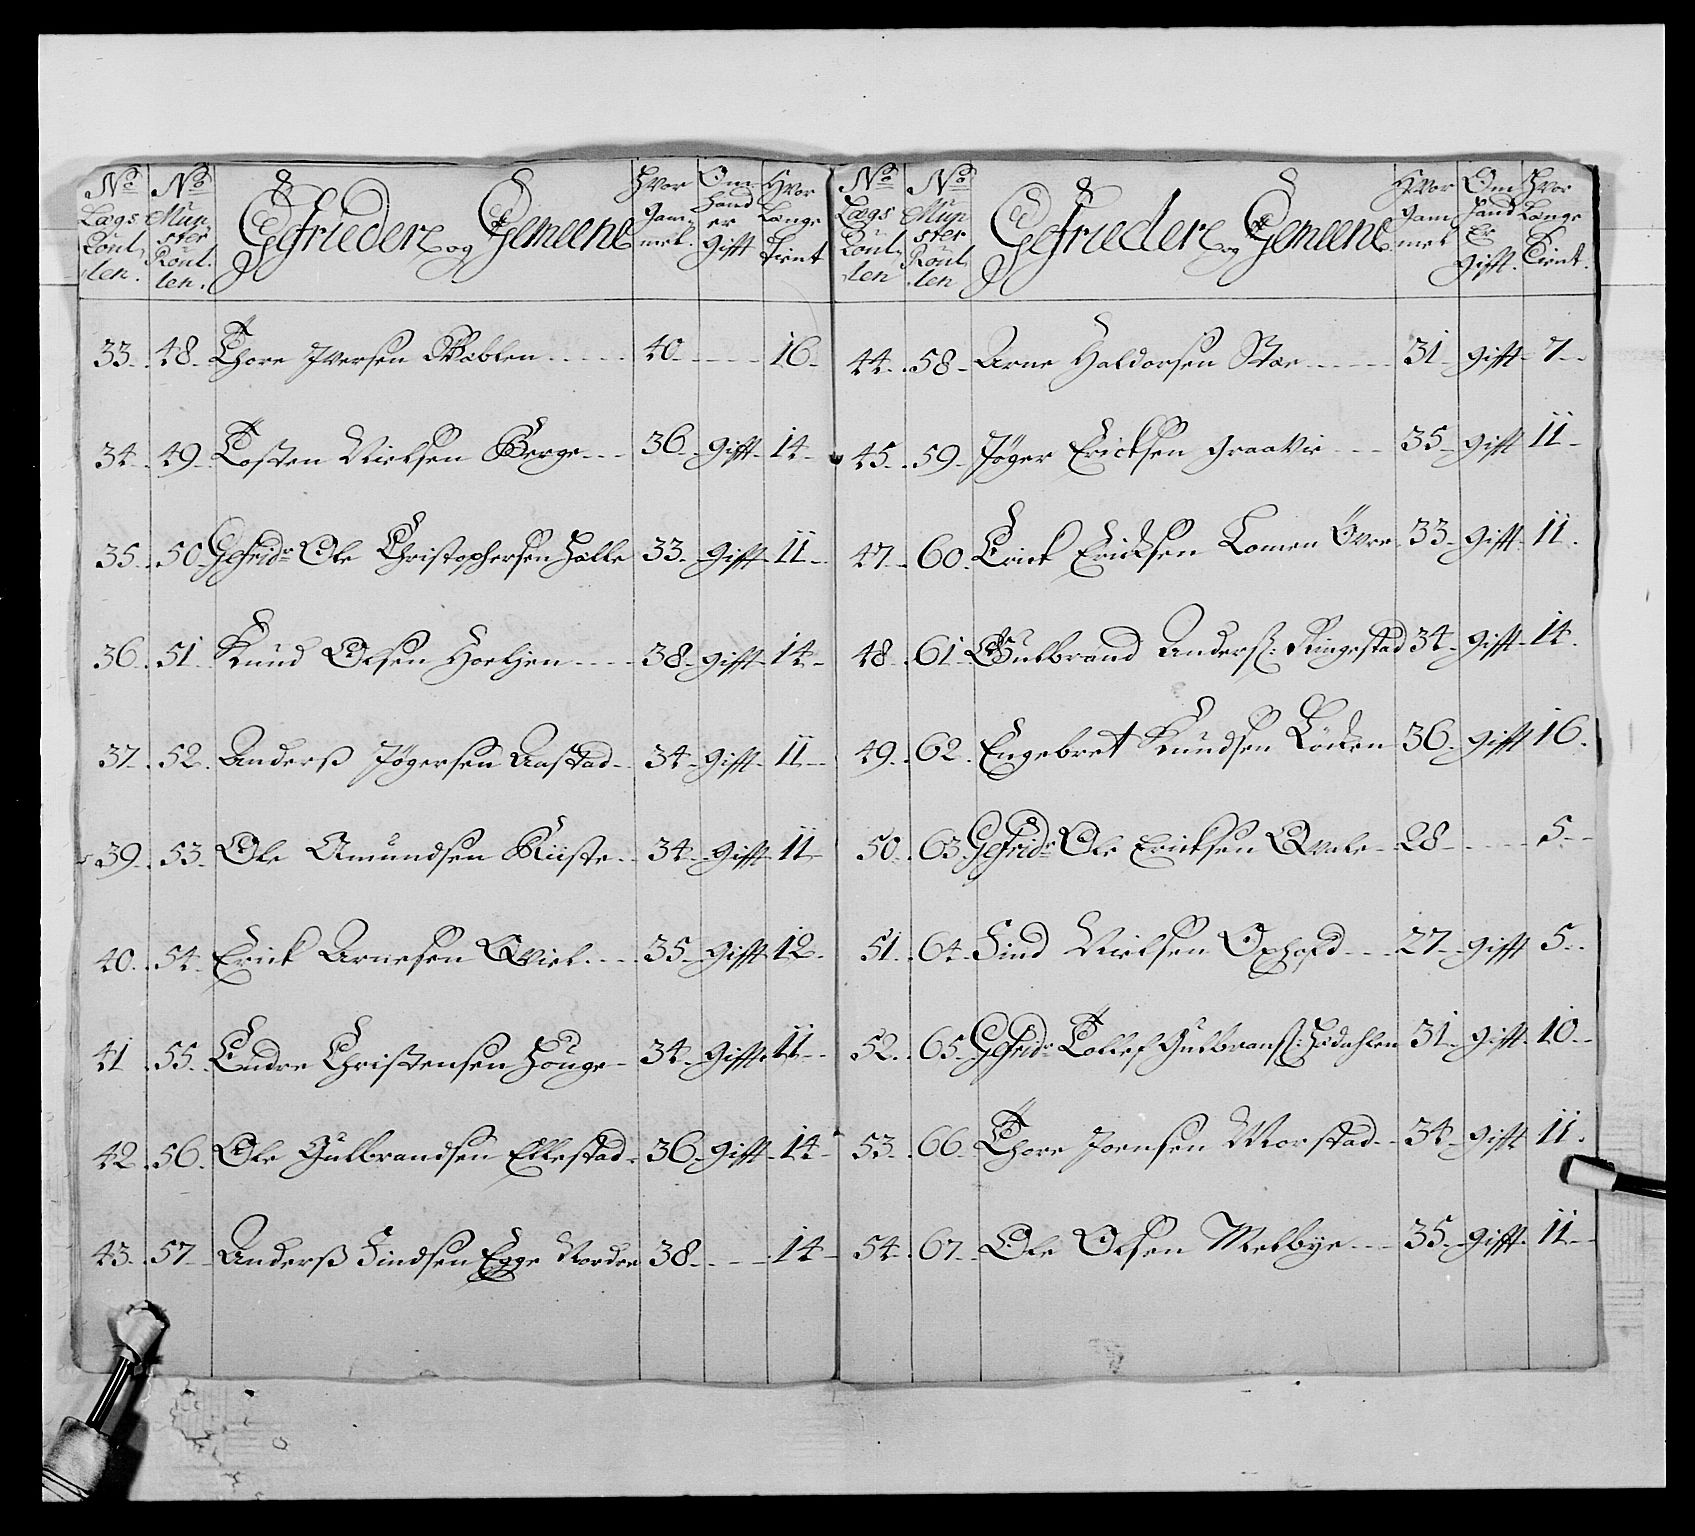 No Lægs Roul len.
No Mun ster Roul len.
Gefriedere og Gemeene
Hvor Gam mel.
Om Hand er Gifft
Hvor Længe tient
33. 48. Thore Iversen Webben 40. 16.
34. 49. Tosten Nielsen Berge 36. Gifft 14.
35. 50. Gefridr Ole Christophersen Hælle 33. Gifft 11.
36. 51. Knud Olsen Hæljen 38. gifft 14.
37. 52. Anderß Jøgersen Aastad 34. gifft 11.
39. 53. Ole Amundsen Riiste 34. gifft 11.
40. 54. Erick Arnesen Qviel 35. gifft 12.
41. 55. Endre Christensen Houge 34. gifft 11.
42. 56. Ole Gulbrandsen Ellestad 36. gifft 14.
43. 57. Anderß Findsen Egge Nordre 38. 14.
No Lægs Roul len
No Mun ster Roul len
Gefriedere og Gemeene
Hvor Gam mel
Om Hand Er Gifft.
Hvor Længe Tient.
44. 58. Arne Haldorsen Støe 31. gifft 7.
45. 59. Jøger Ericksen 35. gifft 11.
47. 60. Erick Ericksen Lomen Øvre 33. gifft 11.
48. 61. Gulbrand Anderß: Ringestad 34. gifft 14.
49. 62. Engebret Knudsen Løcken 36. gifft 16.
50. 63. Gefridr Ole Ericksen Qvale 28. 5.
51. 64. Find Nielsen Oxhofd 27. gifft 5.
52. 65. Gefridr Tollef Gulbranß: Hedahlen 31. gifft 10.
53. 66. Thore Joensen Morstad 34. gifft 11.
54. 67. Ole Olsen Melbye 35. gifft 11.